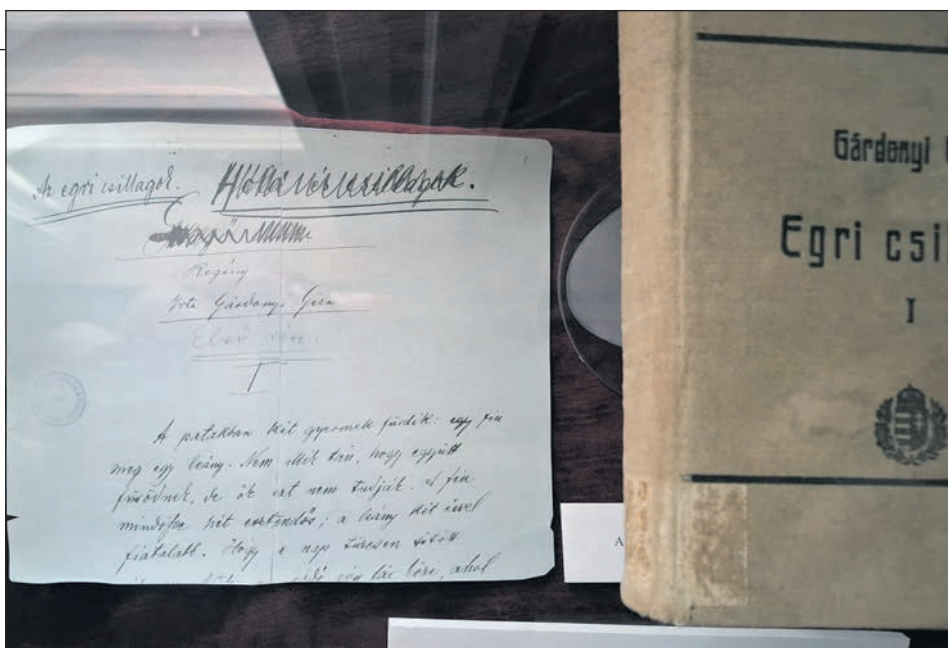 Az egri csillagok.
Regény
Irta Gárdonyi Géza
Első rész.
I
A patakban két gyermek fürdik: egy fiu
meg egy leány. Nem illik tán, hogy együtt
fürödnek, de ők ezt nem tudják. A fiu
mindössze hét esztendős; a leány két évvel
fiatalabb.
a nap
ahol
Gárdonyi
Egri csi
I
A